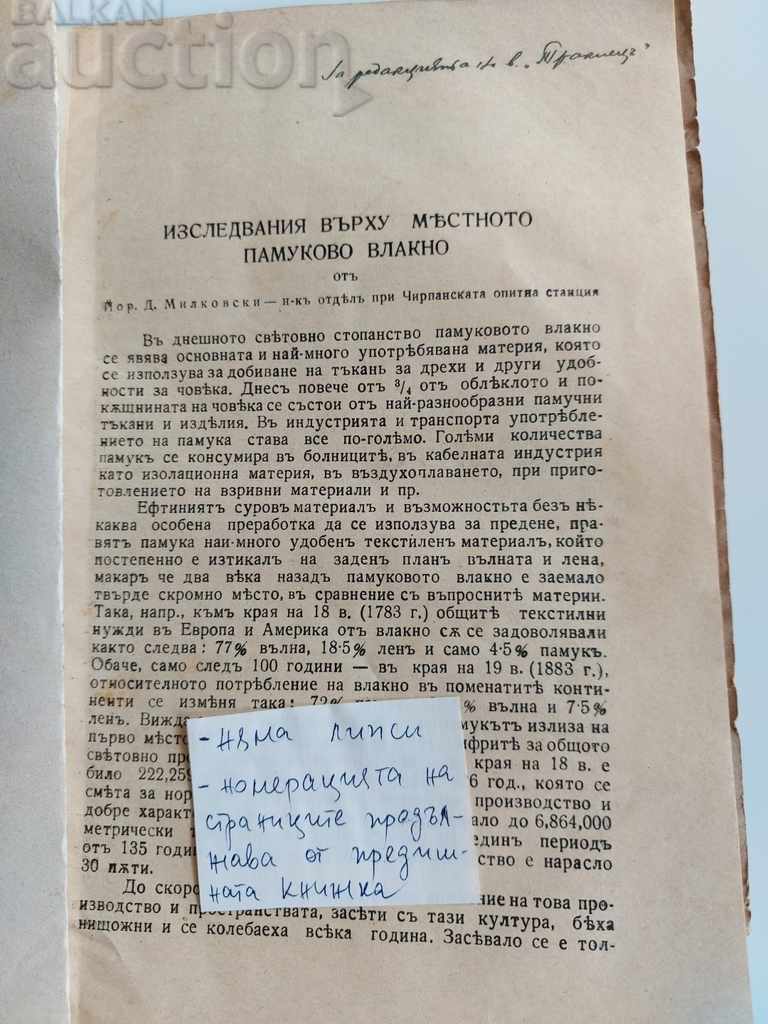 BALKAN
auction
За редакцията на в. „Тракиецъ"
ИЗСЛЕДВАНИЯ ВЪРХУ МѢСТНОТО
ПАМУКОВО ВЛАКНО
отъ
Йор. Д. Милковски — н-къ отдѣлъ при Чирпанската опитна станция
Въ днешното свѣтовно стопанство памуковото влакно
се явява основната и най-много употрѣбявана материя, която
се използува за добиване на тъкань за дрехи и други удоб-
ности за човѣка. Днесъ повече отъ ³/₄ отъ облѣклото и по-
кѫщнината на човѣка се състои отъ най-разнообразни памучни
тъкани и изделия. Въ индустрията и транспорта употрѣбле-
нието на памука става все по-голѣмо. Голѣми количества
памукъ се консумира въ болницитѣ, въ кабелната индустрия
като изолационна материя, въ въздухоплаването, при приго-
товлението на взривни материали и пр.
Ефтиниятъ суровъ материалъ и възможностьта безъ нѣ-
каква особена преработка да се използува за предене, пра-
вятъ памука наи-много удобенъ текстиленъ материалъ, който
постепенно е изтикалъ на заденъ планъ вълната и лена,
макаръ че два вѣка назадъ памуковото влакно е заемало
твърде скромно мѣсто, въ сравнение съ въпроснитѣ материи.
Така, напр., къмъ края на 18 в. (1783 г.) общитѣ текстилни
нужди въ Европа и Америка отъ влакно сѫ се задоволявали
както следва: 77% вълна, 18·5% ленъ и само 4·5% памукъ.
Обаче, само следъ 100 години — въ края на 19 в. (1883 г.),
относителното потрѣбление на влакно въ поменатитѣ конти-
ненти се измѣня така: 72% % вълна и 7·5%
ленъ. Вижда мукътъ излиза на
първо мѣсто ифритѣ за общото
свѣтовно пр края на 18 в. е
било 222,25 6 год., която се
смѣта за нор производство и
добре характ ало до 6,864,000
метрически единъ периодъ
отъ 135 годи ство е нарасло
30 пѫти.
До скоро ние на това про-
изводство и пространствата, засѣти съ тази култура, бѣха
нищожни и се колебаеха всѣка година. Засѣвало се е тол-
- няма липси
- номерацията на
страниците продъл-
жава от предиш-
ната книжка